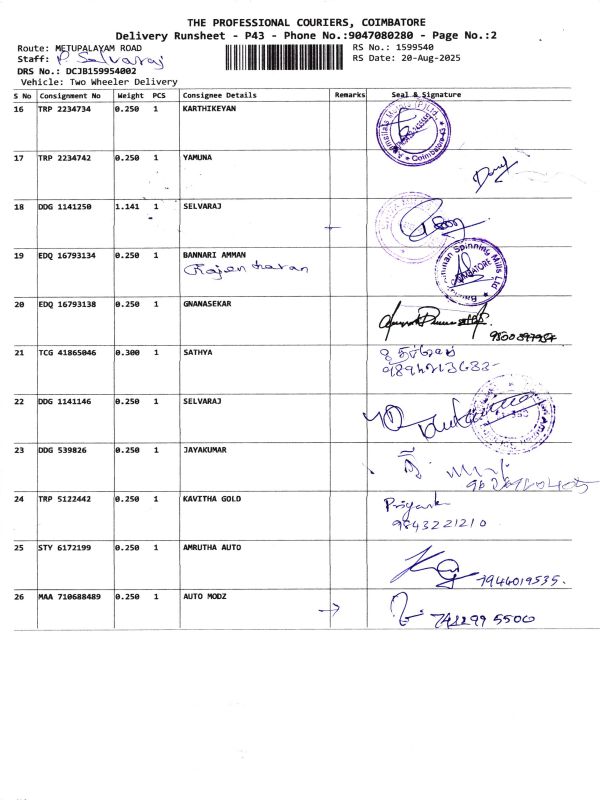 THE PROFESSIONAL COURIERS, COIMBATORE
Delivery Runsheet - P43 - Phone No.:9047080280 - Page No.:2
Route: METUPALAYAM ROAD
RS No.: 1599540
Staff: P. Selvaraj
RS Date: 20-Aug-2025
DRS No.: DCJB159954002
Vehicle: Two Wheeler Delivery
S No Consignment No Weight PCS Consignee Details Remarks Seal & Signature
16 TRP 2234734 0.250 1 KARTHIKEYAN
17 TRP 2234742 0.250 1 YAMUNA
18 DDG 1141250 1.141 1 SELVARAJ
19 EDQ 16793134 0.250 1 BANNARI AMMAN
Rajendharan
Spinning Mills Ltd
COIMBATORE
20 EDQ 16793138 0.250 1 GNANASEKAR
21 TCG 41865046 0.300 1 SATHYA
22 DDG 1141146 0.250 1 SELVARAJ
23 DDG 539826 0.250 1 JAYAKUMAR
24 TRP 5122442 0.250 1 KAVITHA GOLD
Priyank
9843221210
25 STY 6172199 0.250 1 AMRUTHA AUTO
7946019535.
26 MAA 710688489 0.250 1 AUTO MODZ